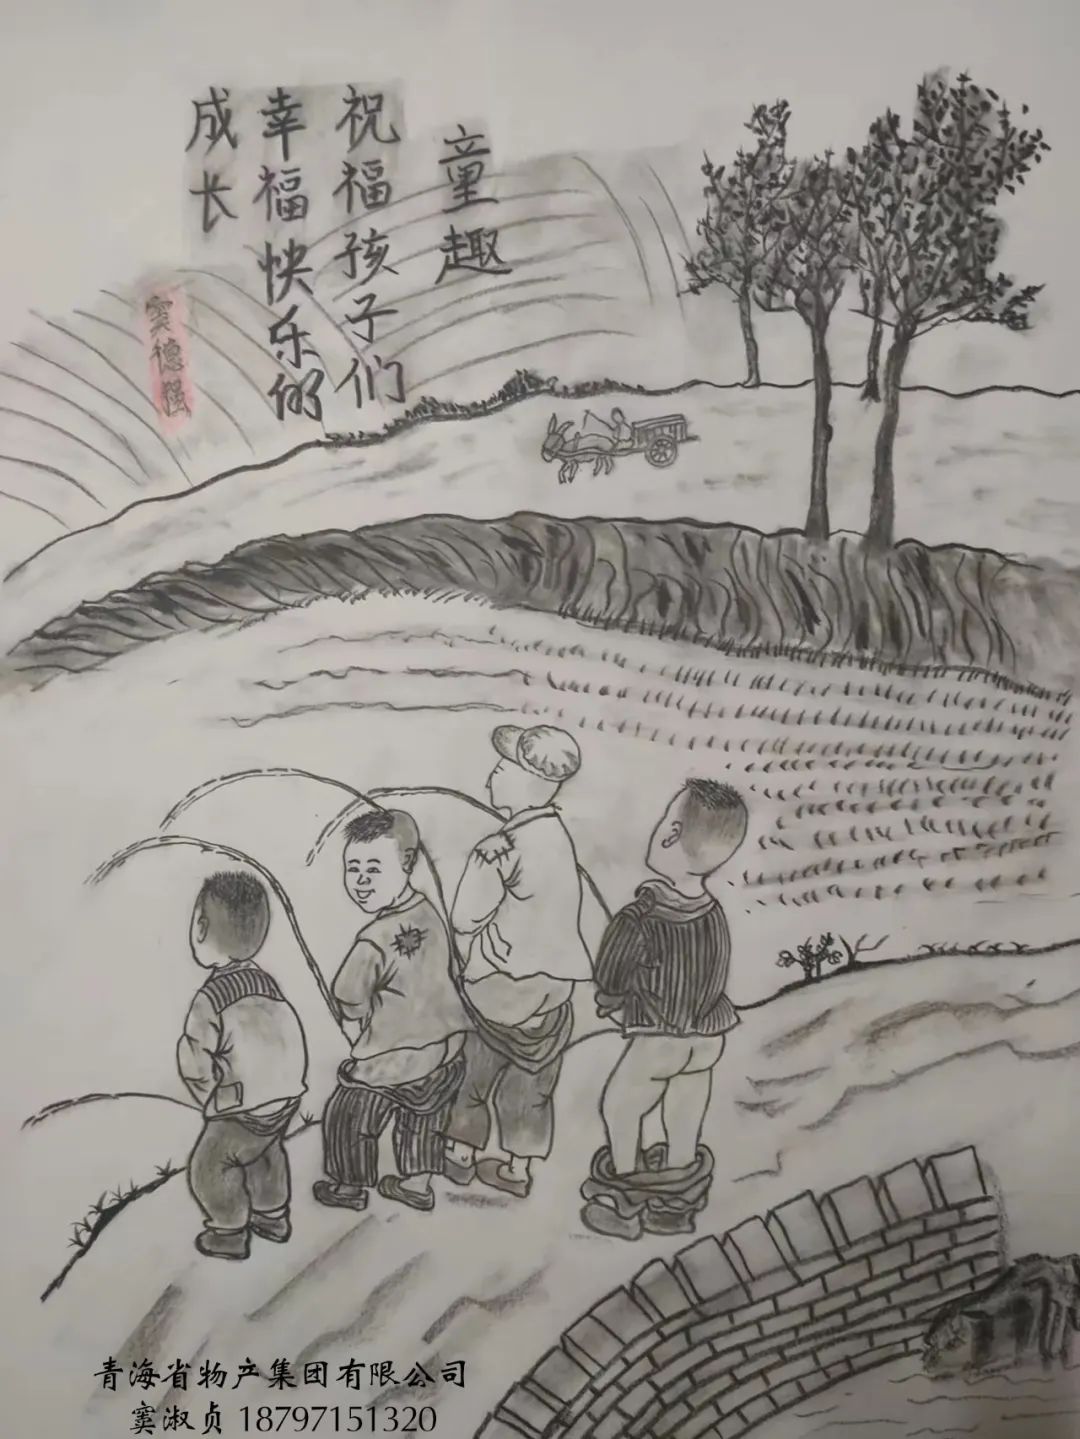 童趣
祝福孩子们
幸福快乐的
成长
窦德强
青海省物产集团有限公司
窦淑贞 18797151320